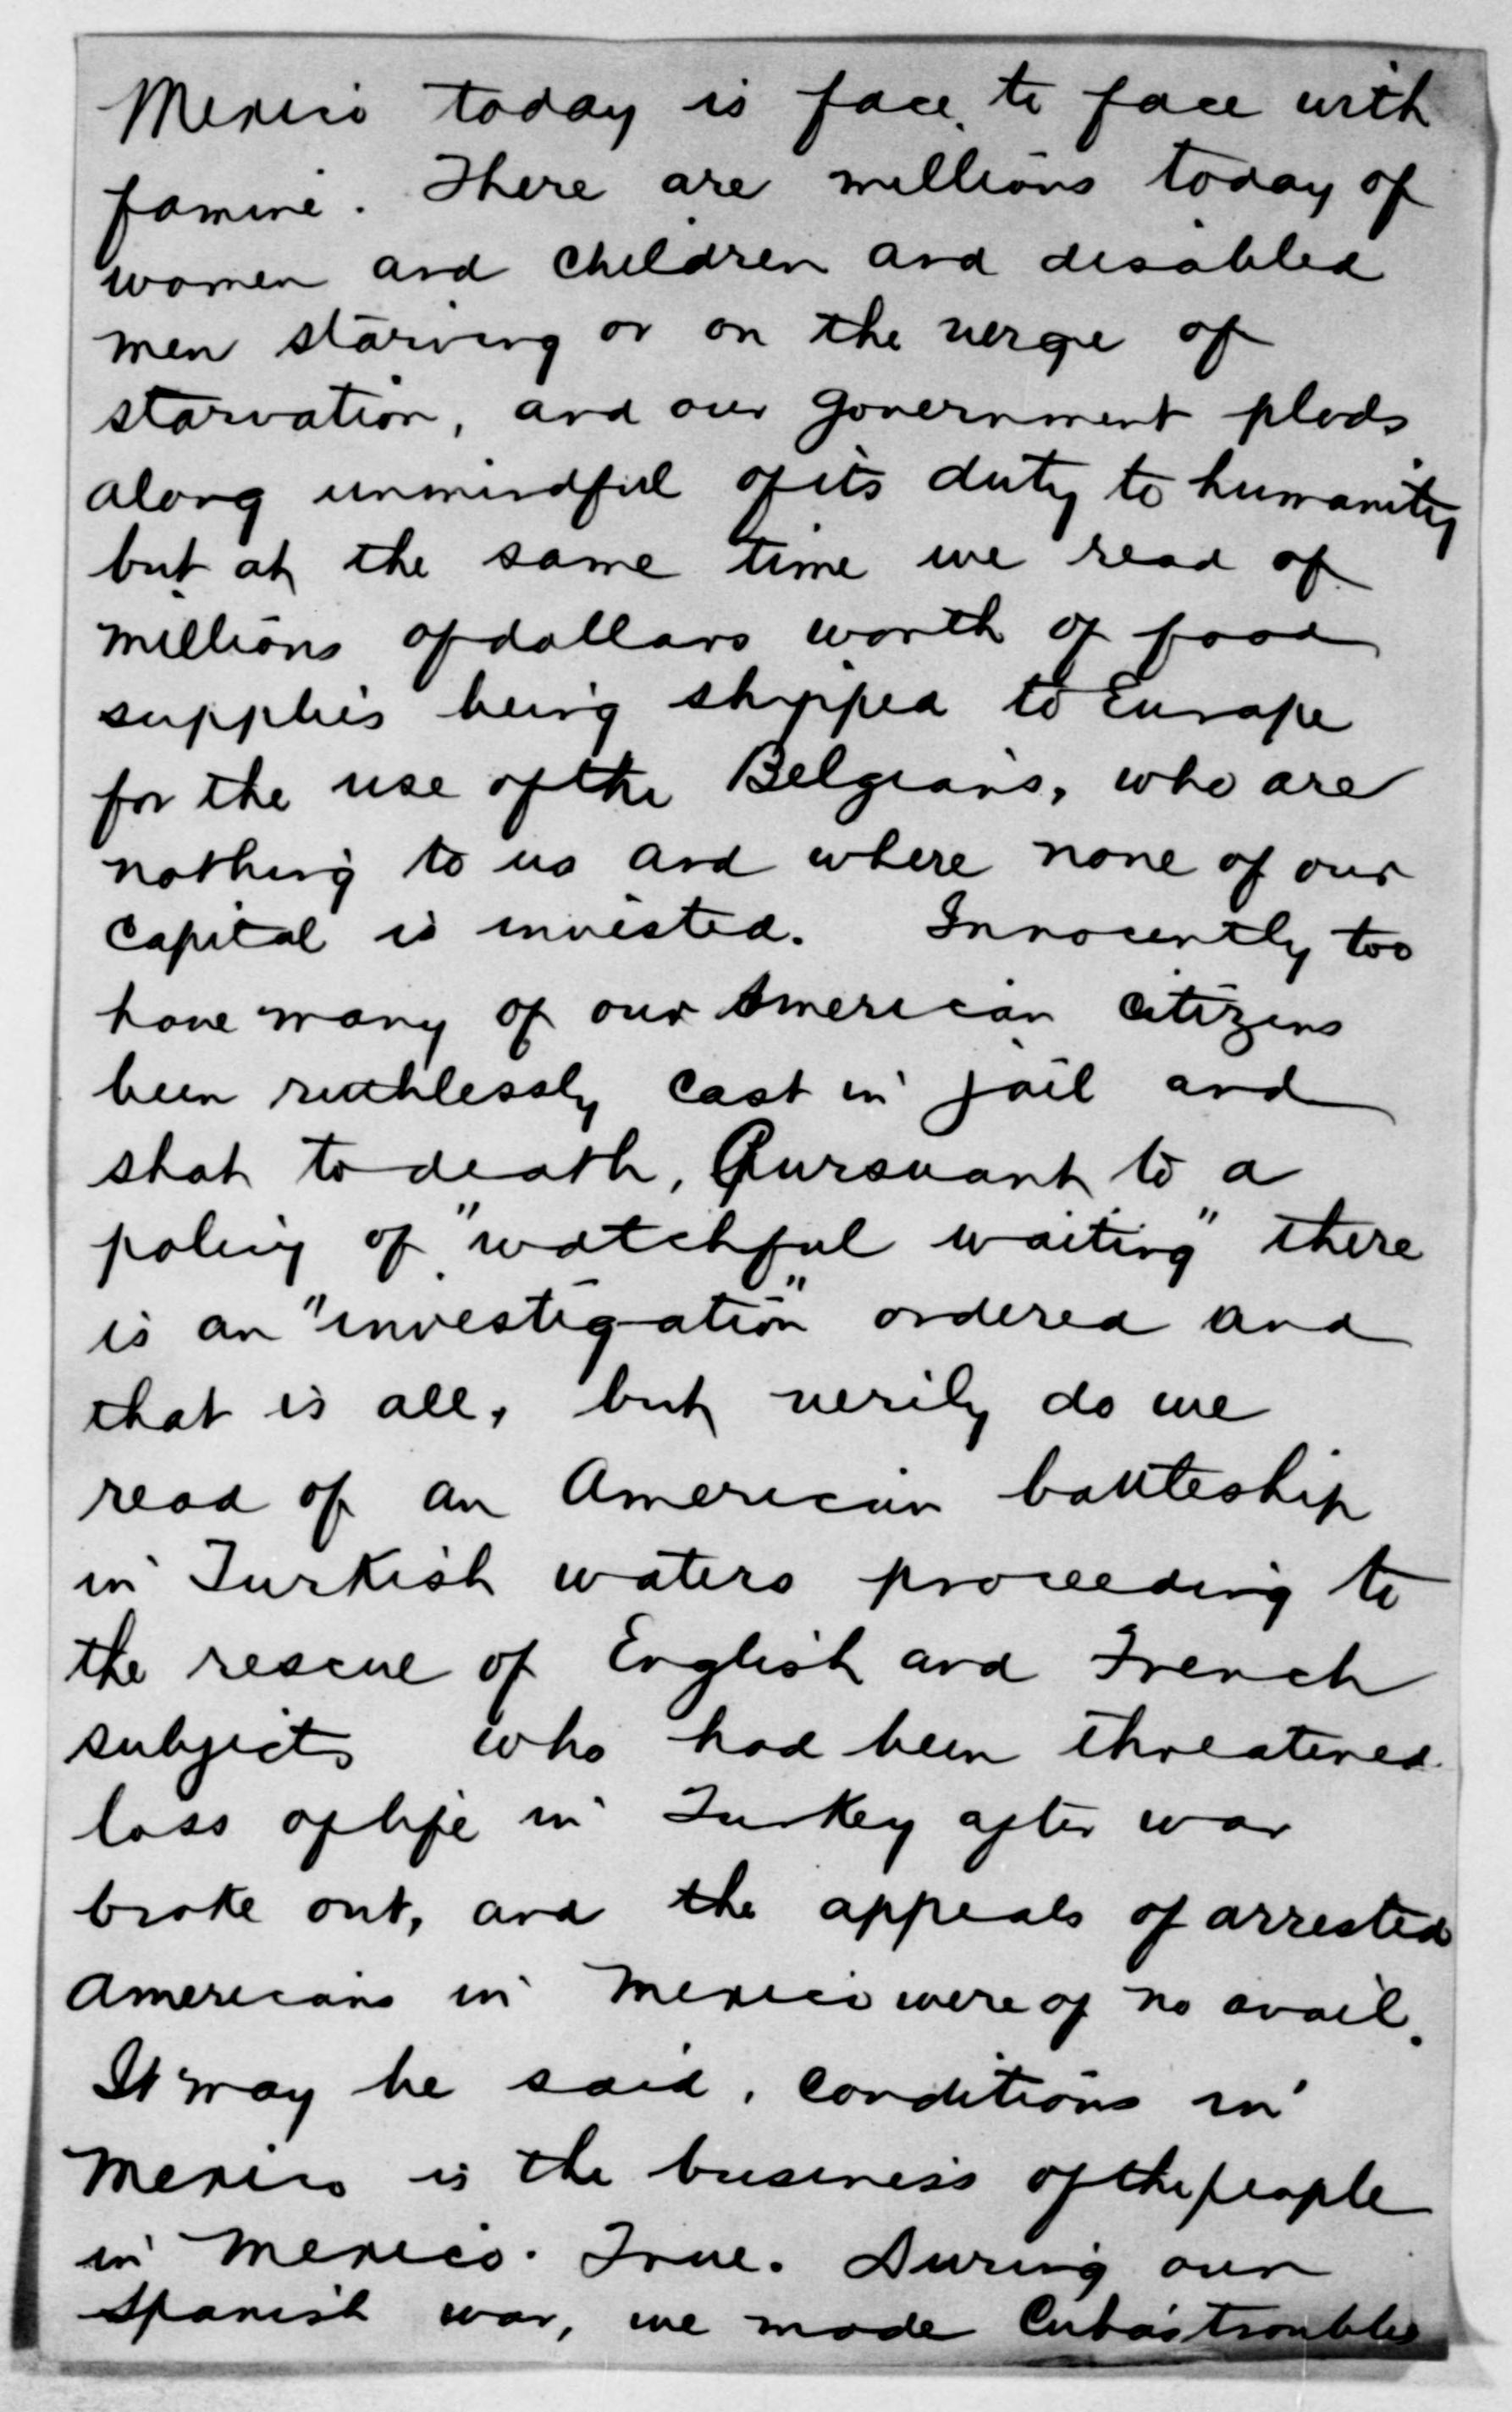 Mexico today is face to face with
famine. There are millions today of
women and children and disabled
men starving or on the verge of
starvation, and our government plods
along unmindful of its duty to humanity
but at the same time we read of
millions of dollars worth of food
supplies being shipped to Europe
for the use of the Belgians, who are
nothing to us and where none of our
capital is invested. Innocently too
have many of our American citizens
been ruthlessly cast in jail and
shot to death, Pursuant to a
policy of "watchful waiting" there
is an "investigation" ordered and
that is all, but verily do we
read of an American battleship
in Turkish waters proceeding to
the rescue of English and French
subjects who had been threatened
loss of life in Turkey after war
broke out, and the appeals of arrested
Americans in Mexico were of no avail.
It may be said, conditions in
Mexico is the business of the people
in Mexico. True. During our
Spanish war, we made Cuba's troubles